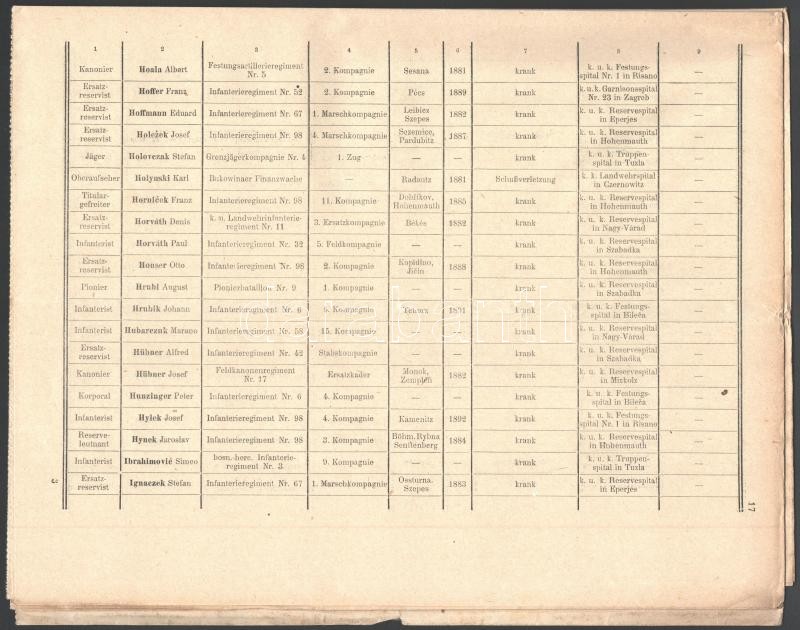 1 2 3 4 5 6 7 8 9
Kanonier Hoala Albert Festungsartillerieregiment Nr. 5 2. Kompagnie Sesana 1881 krank k. u. k. Festungsspital Nr. 1 in Risano —
Ersatzreservist Hoffer Franz Infanterieregiment Nr. 52 2. Kompagnie Pécs 1889 krank k.u.k. Garnisonsspital Nr. 23 in Zagreb —
Ersatzreservist Hoffmann Eduard Infanterieregiment Nr. 67 1. Marschkompagnie Leibicz Szepes 1882 krank k. u. k. Reservespital in Eperjes —
Ersatzreservist Holeżek Josef Infanterieregiment Nr. 98 4. Marschkompagnie Sezemice, Pardubitz 1887 krank k. u. k. Reservespital in Hohenmauth —
Jäger Holovczak Stefan Grenzjägerkompagnie Nr. 4 1. Zug — — krank k. u. k. Truppenspital in Tuzla —
Oberaufseher Holynski Karl Bukowinaer Finanzwache Radautz 1881 Schußverletzung k. k. Landwehrspital in Czernowitz —
Titulargefreiter Horníček Franz Infanterieregiment Nr. 98 11. Kompagnie Dobříkov, Hohenmauth 1885 krank k. u. k. Reservespital in Hohenmauth —
Ersatzreservist Horváth Denis k. u. Landwehrinfanterieregiment Nr. 11 3. Ersatzkompagnie Békés 1882 krank k. u. k. Reservespital in Nagy-Várad —
Infanterist Horváth Paul Infanterieregiment Nr. 32 5. Feldkompagnie — — krank k. u. k. Reservespital in Szabadka —
Ersatzreservist Houser Otto Infanterieregiment Nr. 98 2. Kompagnie Kopidlno, Jičin 1888 krank k. u. k. Reservespital in Hohenmauth —
Pionier Hrubl August Pionierbataillon Nr. 9 1. Kompagnie — — krank k. u. k. Reservespital in Szabadka —
Infanterist Hrubik Johann Infanterieregiment Nr. 6 5. Kompagnie 1891 krank k. u. k. Festungsspital in Bileća —
Infanterist Hubarczuk Marano Infanterieregiment Nr. 58 15. Kompagnie — — krank k. u. k. Reservespital in Nagy-Várad —
Ersatzreservist Hübner Alfred Infanterieregiment Nr. 42 Stabskompagnie — — krank k. u. k. Reservespital in Szabadka —
Kanonier Hübner Josef Feldkanonenregiment Nr. 17 Ersatzkader Monok, Zemplén 1882 krank k. u. k. Reservespital in Miskolz —
Korporal Hunzinger Peter Infanterieregiment Nr. 6 4. Kompagnie — — krank k. u. k. Festungsspital in Bileća —
Infanterist Hylek Josef Infanterieregiment Nr. 98 4. Kompagnie Kamenitz 1892 krank k. u. k. Festungsspital Nr. 1 in Risano —
Reserveleutnant Hynek Jaroslav Infanterieregiment Nr. 98 3. Kompagnie Böhm. Rybna Senftenberg 1884 krank k. u. k. Reservespital in Hohenmauth —
Infanterist Ibrahimović Simeo bosn.-herc. Infanterieregiment Nr. 3 9. Kompagnie — — krank k. u. k. Truppenspital in Tuzla —
Ersatzreservist Ignaczek Stefan Infanterieregiment Nr. 67 1. Marschkompagnie Ossturna, Szepes 1883 krank k. u. k. Reservespital in Eperjes —
3
17